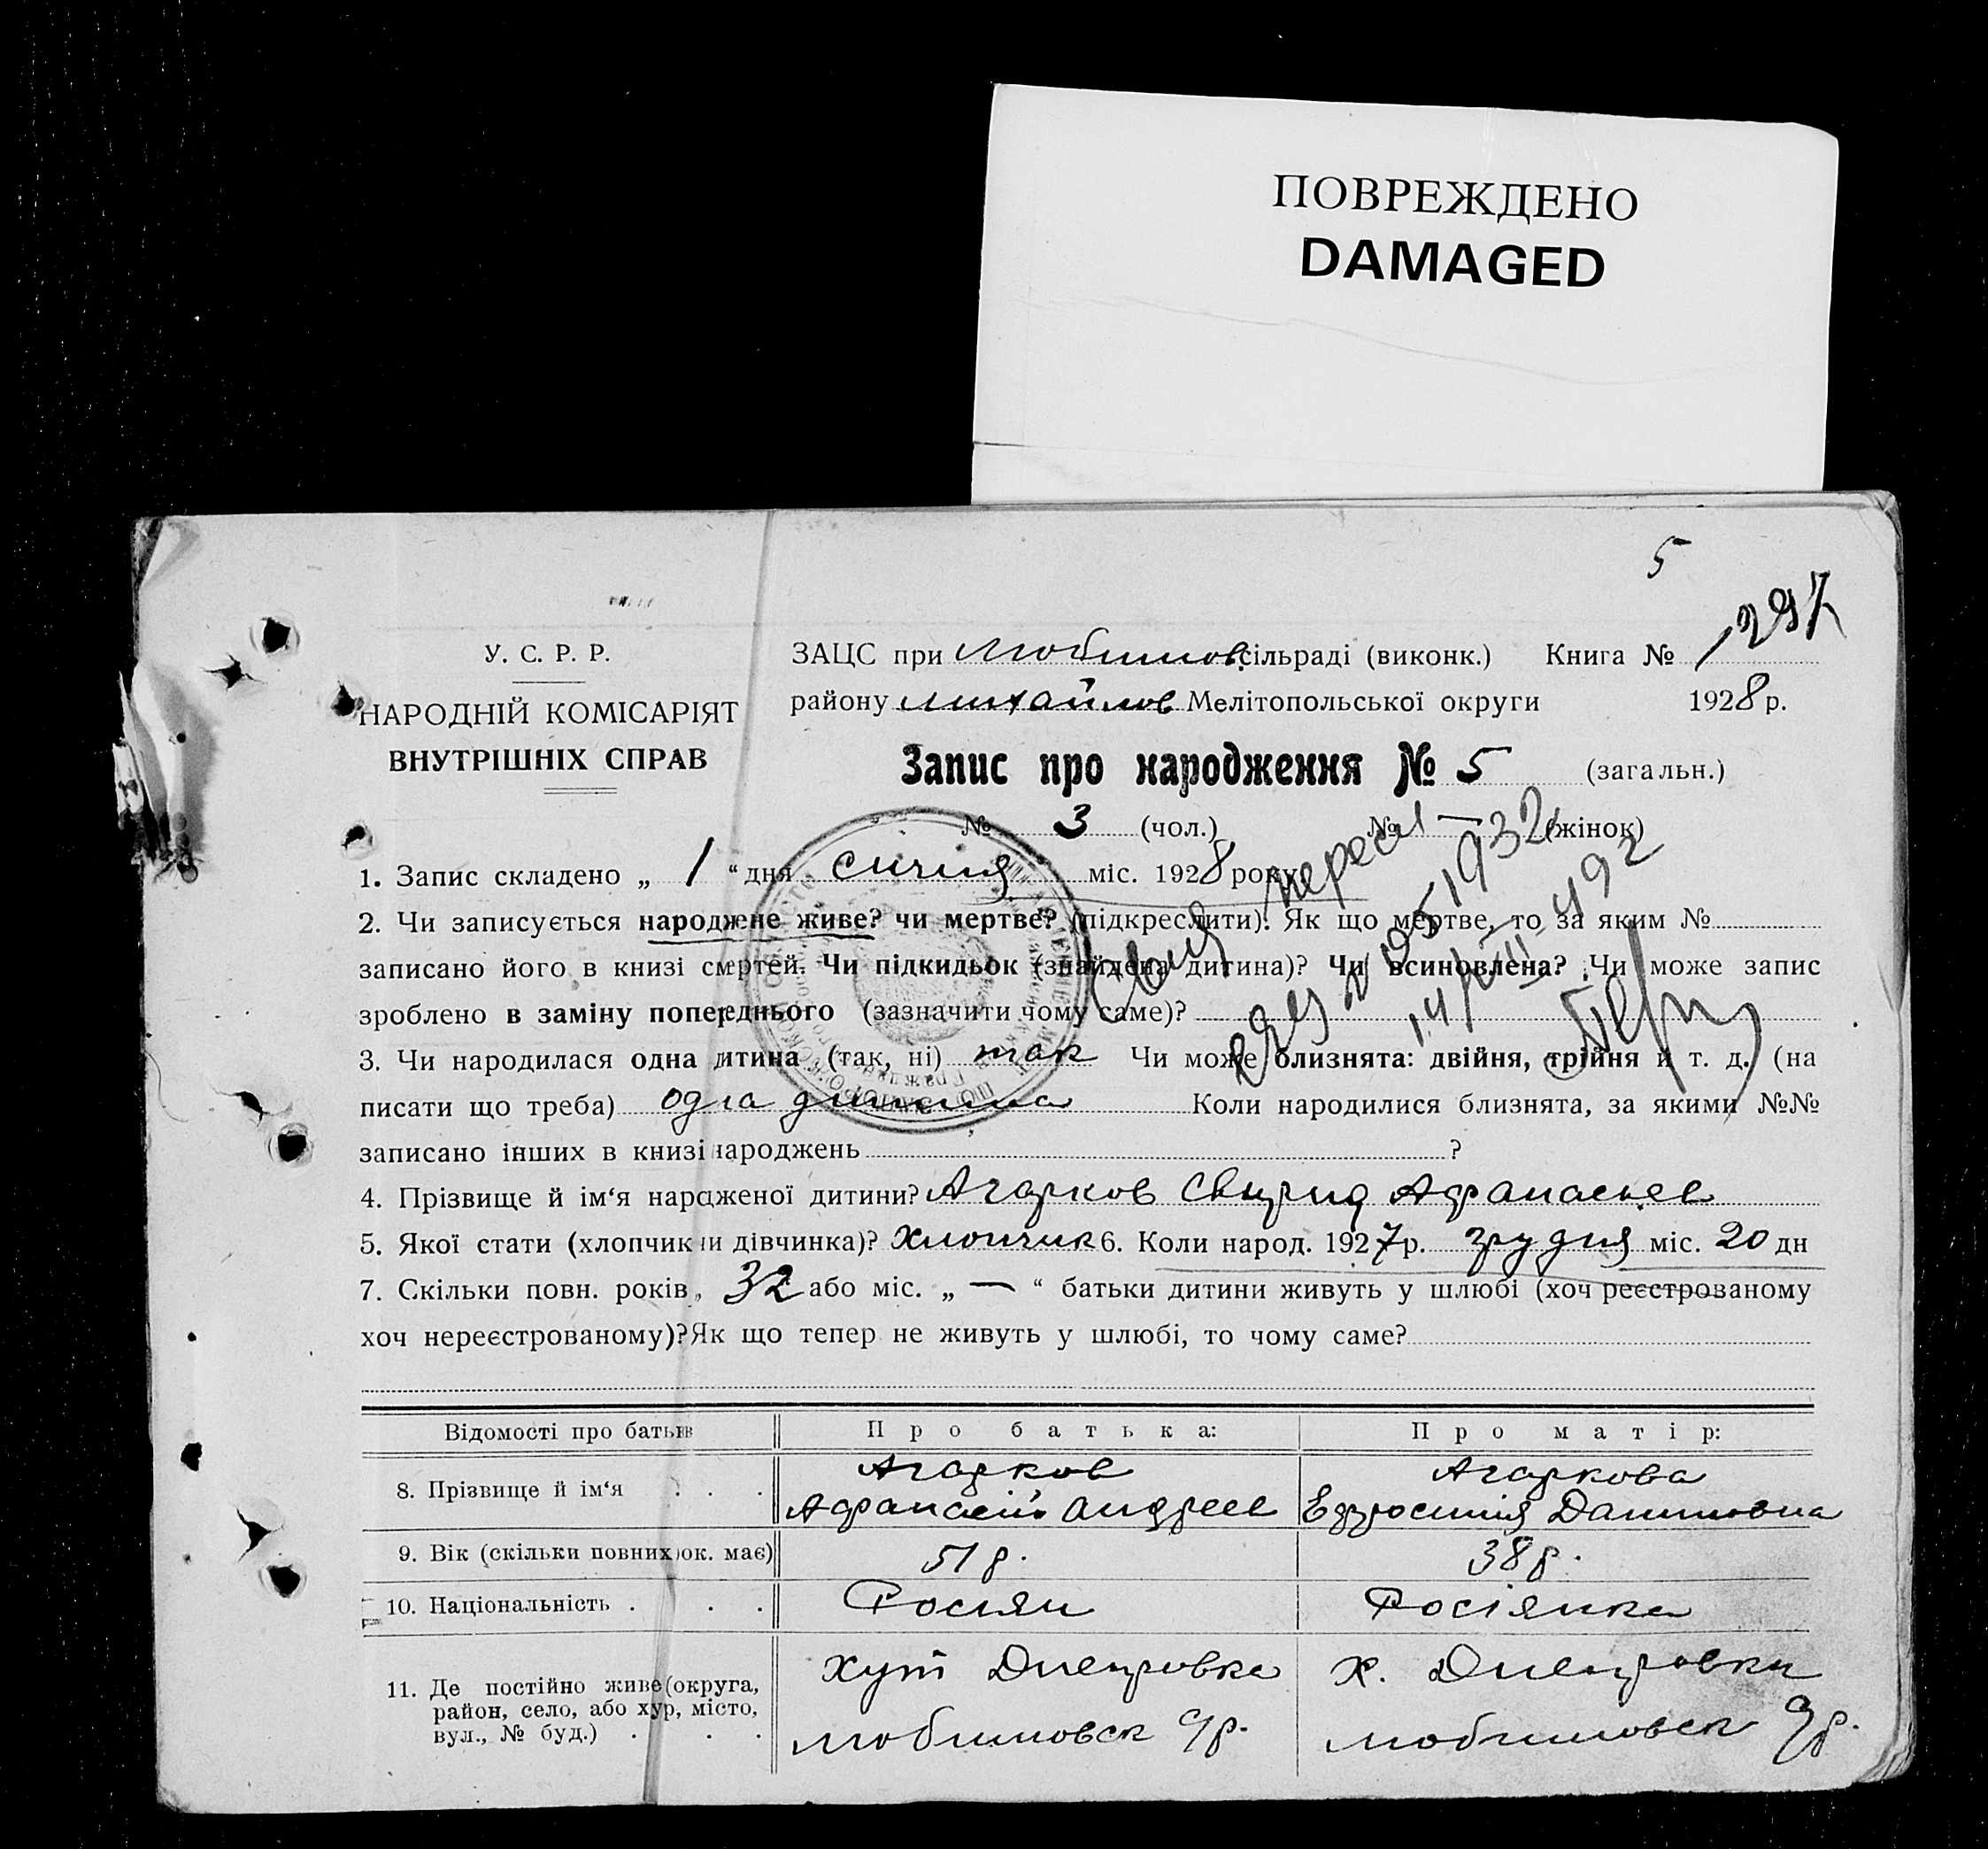 ПОВРЕЖДЕНО
DAMAGED
5
1297
У. С. Р. Р.
НАРОДНІЙ КОМІСАРІЯТ
ВНУТРІШНІХ СПРАВ
ЗАЦС при Любимов. сільраді (виконк.) Книга № 1
району Михайлов Мелітопольської округи 1928 р.
Запис про народження № 5 (загальн.)
№ 3 (чол.) № — (жінок)
1. Запис складено „ 1 “ дня січня міс. 1928 року
2. Чи записується народжене живе? чи мертве? (підкреслити). Як що мертве, то за яким №
записано його в книзі смертей. Чи підкидьок (знайдена дитина)? Чи всиновлена? Чи може запис
зроблено в заміну попереднього (зазначити чому саме)?
3. Чи народилася одна дитина (так, ні) так Чи може близнята: двійня, трійня й т. д. (на
писати що треба) одна дитина Коли народилися близнята, за якими №№
записано інших в книзі народжень ?
4. Прізвище й ім‘я народженої дитини? Агарков Свирид Афанасьев
5. Якої стати (хлопчик чи дівчинка)? Хлопчик 6. Коли народ. 1927 р. грудня міс. 20 дн
7. Скільки повн. років „ 32 або міс. „ — “ батьки дитини живуть у шлюбі (хоч реєстрованому
хоч нереєстрованому)? Як що тепер не живуть у шлюбі, то чому саме?
Відомості про батьків Про батька: Про матір:
8. Прізвище й ім‘я . . . Агарков Агаркова
Афанасий Андреев Ефросиния Даниловна
9. Вік (скільки повних рок. має) 51 р. 38 р.
10. Національність . . . Росіян Росіянка
11. Де постійно живе (округа,
район, село, або хур, місто,
вул., № буд.) . . .
Хут Днепровка Х. Днепровки
Любимовск с/р. Любимовск с/р.